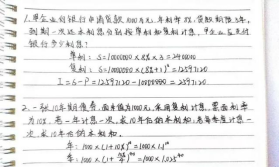 1. 某企业向银行申请贷款1000万元,年利率8%,贷款期限3年,
到期一次还本利息分别按单利和复利计息,
银行多少利息?
单利: S=10000000×8%×3=2400000
复利: S=10000000(8%+1)³=12597120
I=S-P=12597120-10000000=2597120
2. 一张10年期债券,面值为1000元,采用复利计息,票面利率
为10%,若一年计息一次,求10年后的本利和,若每季度计息一
次,求10年后的本利和。
年: 1000×(1+10%)¹⁰=1000×1.1¹⁰
季: 1000×(1+10%/4)⁴⁰=1000×1.025⁴⁰